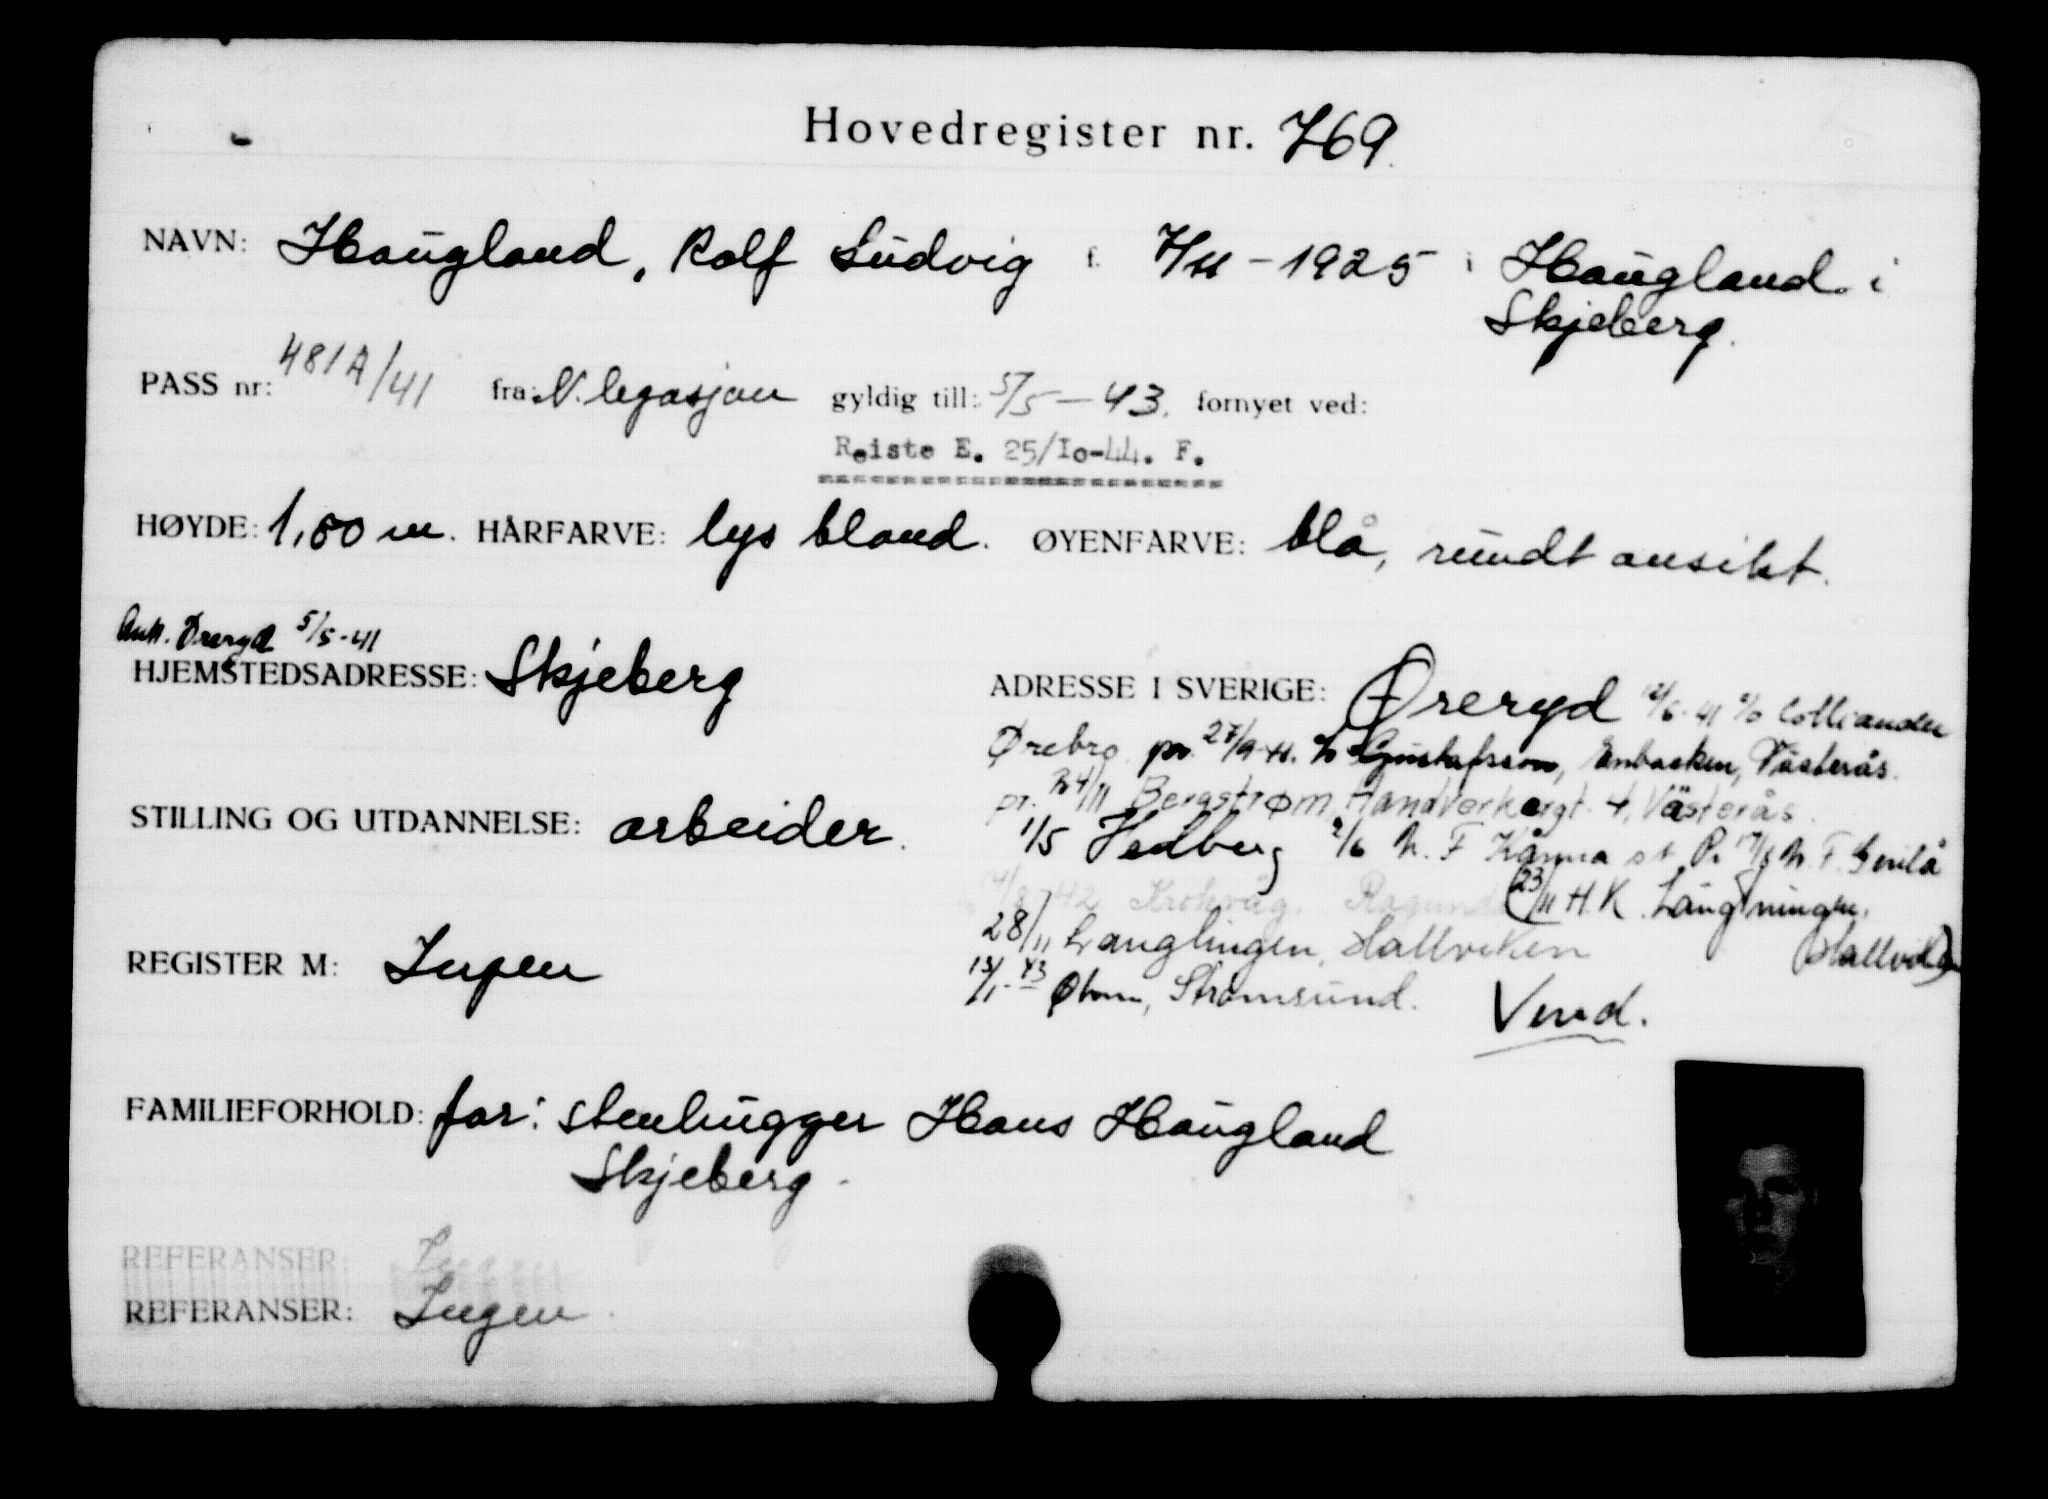 Hovedregister nr. 769.
NAVN: Haugland, Rolf Ludvig f. 7/11-1925 i Haugland i
Skjeberg.
PASS nr: 481A/41 fra: N. legasjon gyldig till: 5/5-43. fornyet ved:
Reiste E. 25/Io-44. F.
HØYDE: 1,80 m. HÅRFARVE: lys blond. ØYENFARVE: blå, rundt ansikt.
Ank. Øreryd 5/5-41
HJEMSTEDSADRESSE: Skjeberg
ADRESSE I SVERIGE: Øreryd 12/6-41 c/o Colliander
Ørebro. pr. 27/9-41. Gustafsson, Enbacken, Västerås.
pr. 24/11 Bergstrøm, Handverkargt. 4, Västerås.
STILLING OG UTDANNELSE: arbeider.
1/5 Hedberg 2/6 N. F. Kårma st. N. F.
42 Krokvåg. Ragunda (23/11 H.K. Långmingen,
28/11 Langlingen, Hallviken Hallvik)
REGISTER M: Ingen
13/1-43 Øhrn, Strømsund. Vend.
FAMILIEFORHOLD: far: stenhugger Hans Haugland
Skjeberg.
REFERANSER: Ingen
REFERANSER: Ingen.